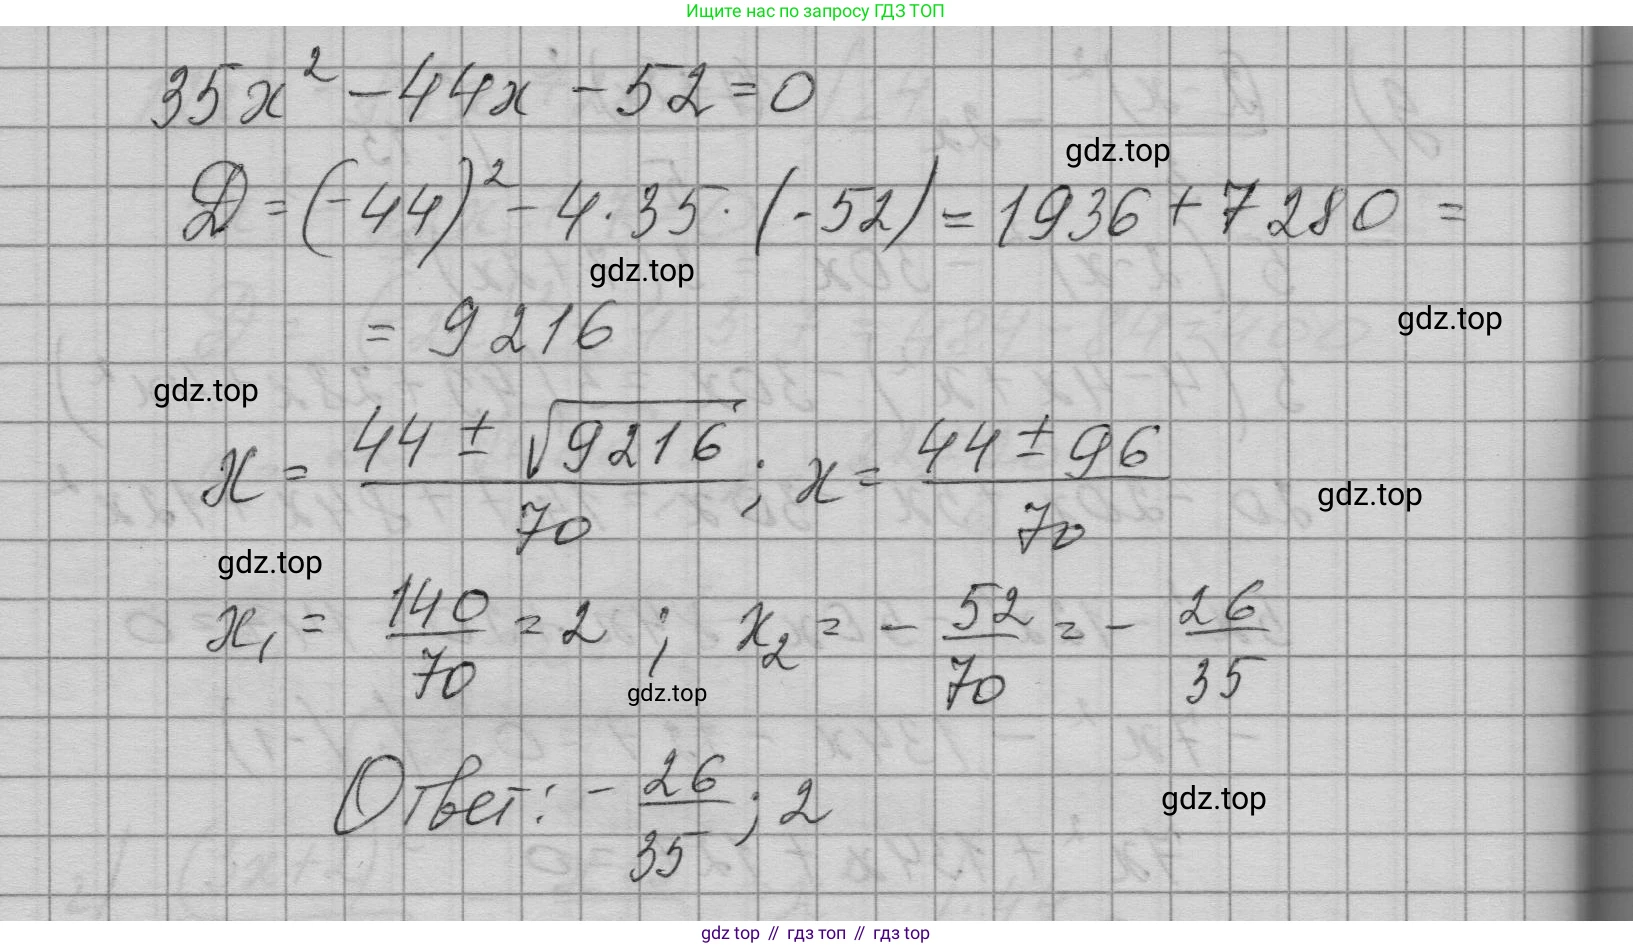 Ищите нас по запросу ГДЗ ТОП
35x² - 44x - 52 = 0
gdz.top
Д = (-44)² - 4 · 35 · (-52) = 1936 + 7280 =
gdz.top
= 9216
gdz.top
gdz.top
x = (44 ± √9216)/70 ; x = (44 ± 96)/70
gdz.top
gdz.top
x₁ = 140/70 = 2 ; x₂ = - 52/70 = - 26/35
gdz.top
Ответ: - 26/35 ; 2
gdz.top
gdz top // гдз топ // гдз top